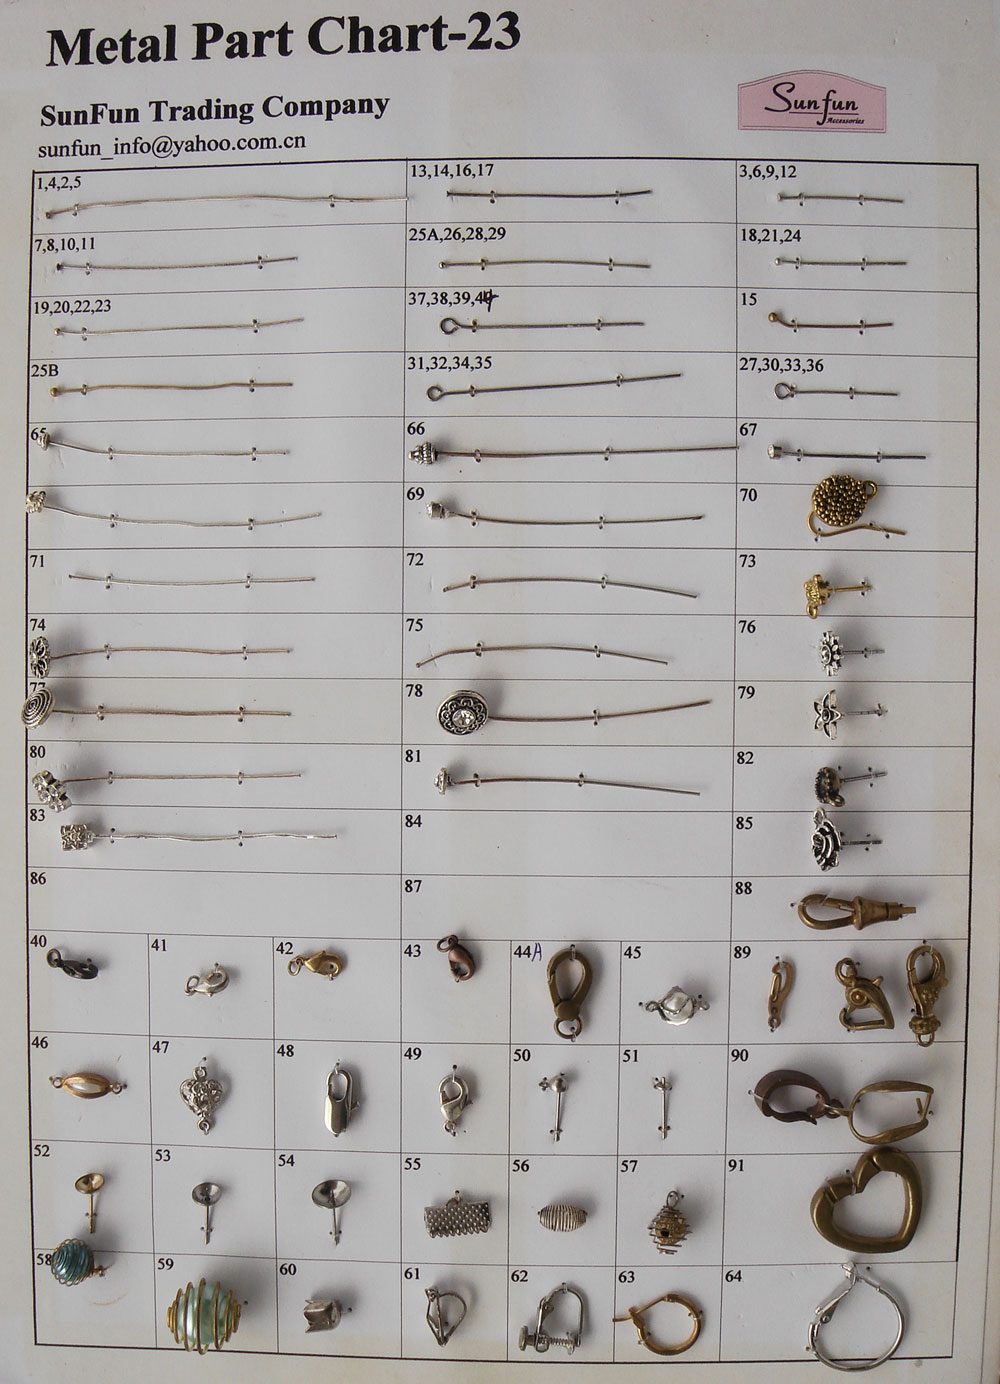 Metal Part Chart-23
SunFun Trading Company
sunfun_info@yahoo.com.cn
Sunfun
Accessories
1,4,2,5
13,14,16,17
3,6,9,12
7,8,10,11
25A,26,28,29
18,21,24
19,20,22,23
37,38,39,4
15
25B
31,32,34,35
27,30,33,36
65
66
67
69
70
71
72
73
74
75
76
77
78
79
80
81
82
83
84
85
86
87
88
40
41
42
43
44A
45
89
46
47
48
49
50
51
90
52
53
54
55
56
57
91
58
59
60
61
62
63
64